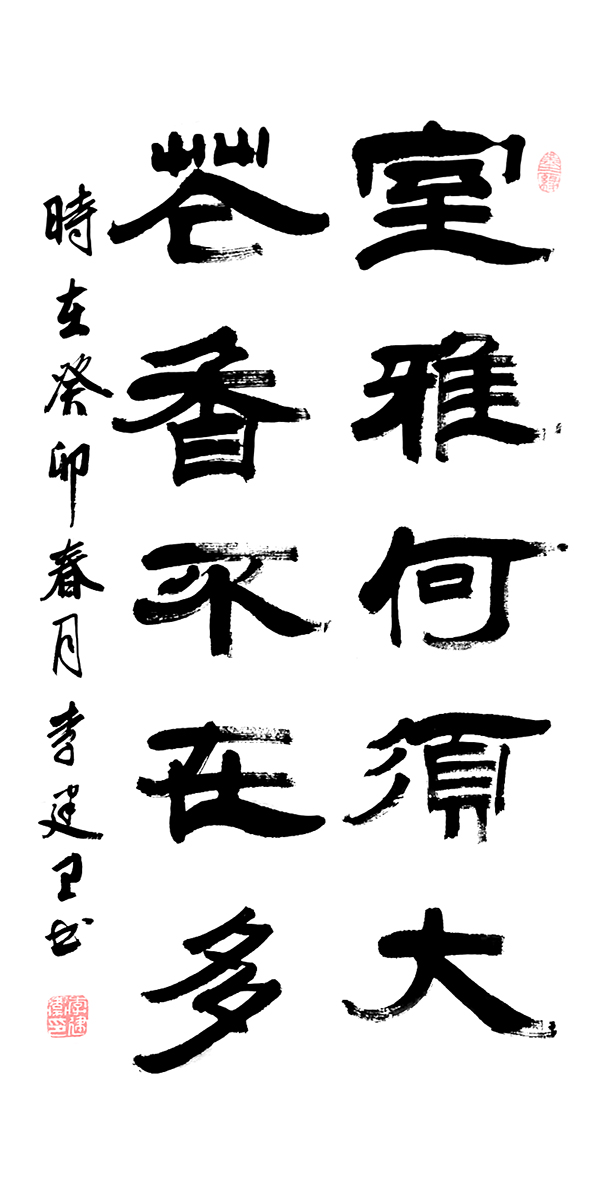 室雅何須大
花香不在多
時在癸卯春月李建卫书